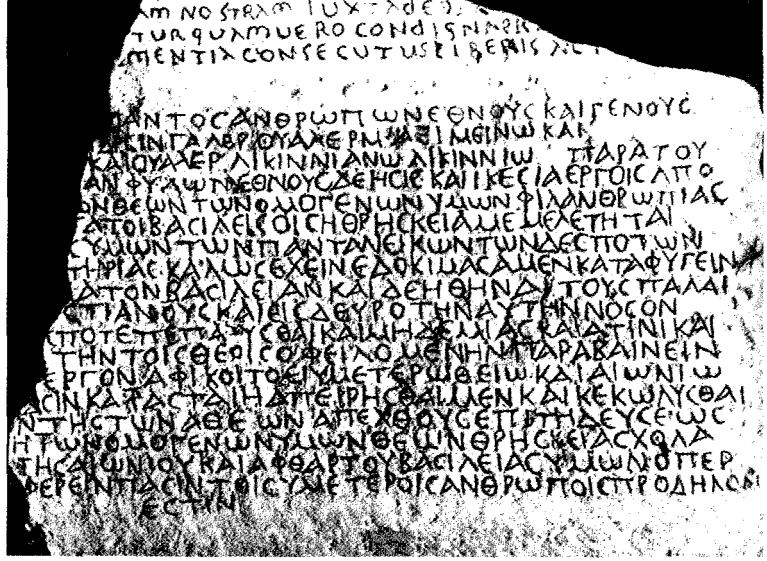 AM NOSTRAM IUXTA DEO
TUR QUAM UERO CONDIGNA
MENTIA CONSECUTUS LIBERIS AC
ΑΝΤΟϹ ΑΝΘΡΩΠΩΝ ΕΘΝΟΥϹ ΚΑΙ ΓΕΝΟΥϹ
ϹΙΝ ΓΑΛΕΡ ΟΥΑΛΕΡ ΜΑΞΙΜΕΙΝΩ ΚΑΙ
ΚΑΙ ΟΥΑΛΕΡ ΛΙΚΙΝΝΙΑΝΩ ΛΙΚΙΝΝΙΩ ΠΑΡΑ ΤΟΥ
ΑΝΦΥΛΩΝ ΕΘΝΟΥϹ ΔΕΗϹΙϹ ΚΑΙ ΙΚΕϹΙΑ ΕΡΓΟΙϹ ΑΠΟ
ΩΝ ΘΕΩΝ ΤΩΝ ΟΜΟΓΕΝΩΝ ΥΜΩΝ ΦΙΛΑΝΘΡΩΠΙΑϹ
ΑΤΟΙ ΒΑϹΙΛΕΙϹ ΟΙϹ Η ΘΡΗϹΚΕΙΑ ΜΕΜΕΛΕΤΗΤΑΙ
ΥΜΩΝ ΤΩΝ ΠΑΝΤΑ ΝΕΙΚΩΝΤΩΝ ΔΕϹΠΟΤΩΝ
ΤΗΡΙΑϹ ΚΑΛΩϹ ΕΧΕΙΝ ΕΔΟΚΙΜΑϹΑΜΕΝ ΚΑΤΑΦΥΓΕΙΝ
ΑΤΟΝ ΒΑϹΙΛΕΙΑΝ ΚΑΙ ΔΕΗΘΗΝΑΙ ΤΟΥϹ ΠΑΛΑΙ
ϹΤΙΑΝΟΥϹ ΚΑΙ ΕΙϹ ΔΕΥΡΟ ΤΗΝ ΑΥΤΗΝ ΝΟϹΟΝ
ΠΟΤΕ ΠΕΠΑΥϹΘΑΙ ΚΑΙ ΜΗΔΕΜΙΑϹ ϹΚΑΙΑ ΤΙΝΙ ΚΑΙ
ΤΗΝ ΤΟΙϹ ΘΕΟΙϹ ΟΦΕΙΛΟΜΕΝΗΝ ΠΑΡΑΒΑΙΝΕΙΝ
ΕΡΓΟΝ ΑΦΙΚΟΙΤΟ ΕΙ ΥΜΕΤΕΡΩ ΘΕΙΩ ΚΑΙ ΑΙΩΝΙΩ
ϹΙΝ ΚΑΤΑϹΤΑΙΗ ΑΠΕΙΡΗϹΘΑΙ ΜΕΝ ΚΑΙ ΚΕΚΩΛΥϹΘΑΙ
Ν ΤΗϹ ΤΩΝ ΑΘΕΩΝ ΑΠΕΧΘΟΥϹ ΕΠΙΤΗΔΕΥϹΕΩϹ
Η ΤΩΝ ΟΜΟΓΕΝΩΝ ΥΜΩΝ ΘΕΩΝ ΘΡΗϹΚΕΙΑ ϹΧΟΛΑ
ΤΗϹ ΑΙΩΝΙΟΥ ΚΑΙ ΑΦΘΑΡΤΟΥ ΒΑϹΙΛΕΙΑϹ ΥΜΩΝ ΟΠΕΡ
ΦΕΡΕΙΝ ΠΑϹΙΝ ΤΟΙϹ ΥΜΕΤΕΡΟΙϹ ΑΝΘΡΩΠΟΙϹ ΠΡΟΔΗΛΟΝ
ΕϹΤΙΝ